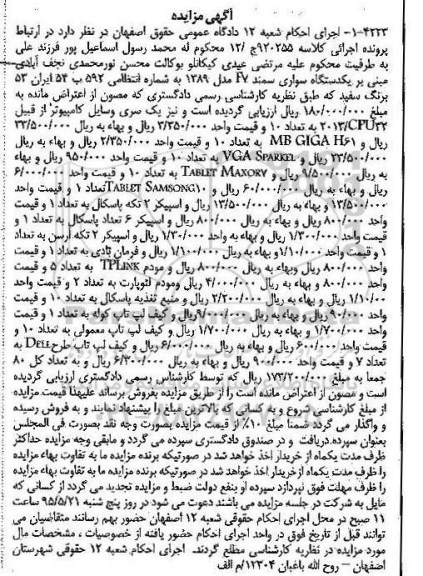 آگهی مزایده
۱-۴۲۲۳- اجرای احکام شعبه ۱۲ دادگاه عمومی حقوق اصفهان در نظر دارد در ارتباط
پرونده اجرائی کلاسه ۹۲۰۲۵۵ج /۱۲ محکوم له محمد رسول اسماعیل پور فرزند علی
به طرفیت محکوم علیه مرتضی عیدی کیکانلو بوکالت محسن نورمحمدی نجف آبادی
مبنی بر یکدستگاه سواری سمند F۷ مدل ۱۳۸۹ به شماره انتظامی ۵۹۲ ب ۵۴ ایران ۵۳
برنگ سفید که طبق نظریه کارشناسی رسمی دادگستری که مصون از اعتراض مانده به
مبلغ ۱۸۰/۰۰۰/۰۰۰ ریال ارزیابی گردیده است و نیز یک سری وسایل کامپیوتر از قبیل
۲۰۱۳/CPU۳۳ به تعداد ۱۰ و قیمت واحد ۳/۳۵۰/۰۰۰ ریال و بهاء به ریال ۳۳/۵۰۰/۰۰۰
ریال و MB GIGA H۶۱ به تعداد ۱۰ و قیمت واحد ۲/۳۵۰/۰۰۰ ریال و بهاء به ریال
۲۳/۵۰۰/۰۰۰ ریال و VGA SPARKEL به تعداد ۱۰ و قیمت واحد ۹۵۰/۰۰۰ ریال و بهاء
به ریال ۹/۵۰۰/۰۰۰ ریال و TABLET MAXORY به تعداد ۱۰ و قیمت واحد ۶/۰۰۰/۰۰۰
ریال و بهاء به ریال ۶۰/۰۰۰/۰۰۰ ریال و TABLET SAMSONG۱۰ تعداد ۱ و قیمت واحد
۱۳/۵۰۰/۰۰۰ ریال و بهاء به ریال ۱۳/۵۰۰/۰۰۰ ریال و اسپیکر ۲ تکه پاسکال به تعداد ۱ و قیمت
واحد ۸۰۰/۰۰۰ ریال و بهاء به ریال ۸۰۰/۰۰۰ ریال و اسپیکر ۶ تعداد پاسکال به تعداد ۱ و
قیمت واحد ۱/۳۰۰/۰۰۰ ریال و بهاء به واحد ۱/۳۰۰/۰۰۰ ریال و اسپیکر ۲ تکه ارسن به تعداد
۱ و قیمت واحد ۱/۱۰۰/۰۰۰ ریال و بهاء به ریال ۱/۱۰۰/۰۰۰ ریال و فرمان بادی به تعداد ۱ و قیمت
واحد ۸۰۰/۰۰۰ ریال وبهاء به ریال ۸۰۰/۰۰۰ ریال و مودم TPLINK به تعداد ۵ و قیمت
واحد ۸۰۰/۰۰۰ و بهاء به ریال ۴/۰۰۰/۰۰۰ ریال ومودم لئوپارت به تعداد ۲ و قیمت واحد
۱/۱۰/۰۰۰ ریال و بهاء به ریال ۲/۲۰۰/۰۰۰ ریال و منبع تغذیه پاسکال به تعداد ۱۰ و قیمت
واحد ۹۰۰/۰۰۰ ریال و بهاء به ریال ۹/۰۰۰/۰۰۰ریال و کیف لپ تاپ کوله به تعداد ۱ و قیمت
واحد ۱/۷۰۰/۰۰۰ و بهاء به ریال ۱/۷۰۰/۰۰۰ ریال و کیف لپ تاپ معمولی به تعداد ۱۰ و
قیمت واحد ۶۰۰/۰۰۰ ریال و بهاء به ریال ۶/۰۰۰/۰۰۰ ریال و کیف لپ تاپ طرح DELL به
تعداد ۷ و قیمت واحد ۹۰۰/۰۰۰ ریال و بهاء به ریال ۶/۳۰۰/۰۰۰ ریال و به تعداد کل ۸۰
جمعا به مبلغ ۱۷۳/۲۰۰/۰۰۰ ریال که توسط کارشناس رسمی دادگستری ارزیابی گردیده
است و مصون از اعتراض مانده است را از طریق مزایده بفروش برساند علیهذا قیمت مزایده
از مبلغ کارشناسی شروع و به کسانی که بالاترین مبلغ را پیشنهاد نمایند و به فروش رسیده
و واگذار می گردد ضمنا مبلغ ۱۰٪ از قیمت مزایده بصورت وجه نقد بصورت فی المجلس
بعنوان سپرده دریافت و در صندوق دادگستری سپرده می گردد و مابقی وجه مزایده حداکثر
ظرف مدت یکماه از خریدار اخذ خواهد شد در صورتیکه برنده مزایده ما به تفاوت بهاء مزایده
را ظرف مدت یکماه ازخریدار اخذ خواهد شد در صورتیکه برنده مزایده ما به تفاوت بهاء مزایده
را ظرف مهلت فوق نپردازد سپرده او بنفع دولت ضبط و مزایده تجدید می گردد از کسانی که
مایل به شرکت در جلسه مزایده می باشند دعوت می شود در روز پنج شنبه ۹۵/۵/۲۱ ساعت
۱۱ صبح در محل اجرای احکام حقوقی شعبه ۱۲ اصفهان حضور بهم رسانند متقاضیان می
توانند قبل از تاریخ فوق در واحد اجرای احکام حضور یافته از خصوصیات ، مشخصات مال
مورد مزایده در نظریه کارشناسی مطلع گردند. اجرای احکام شعبه ۱۲ حقوقی شهرستان
اصفهان – روح الله باغبان ۱۲۳۰۴/م الف